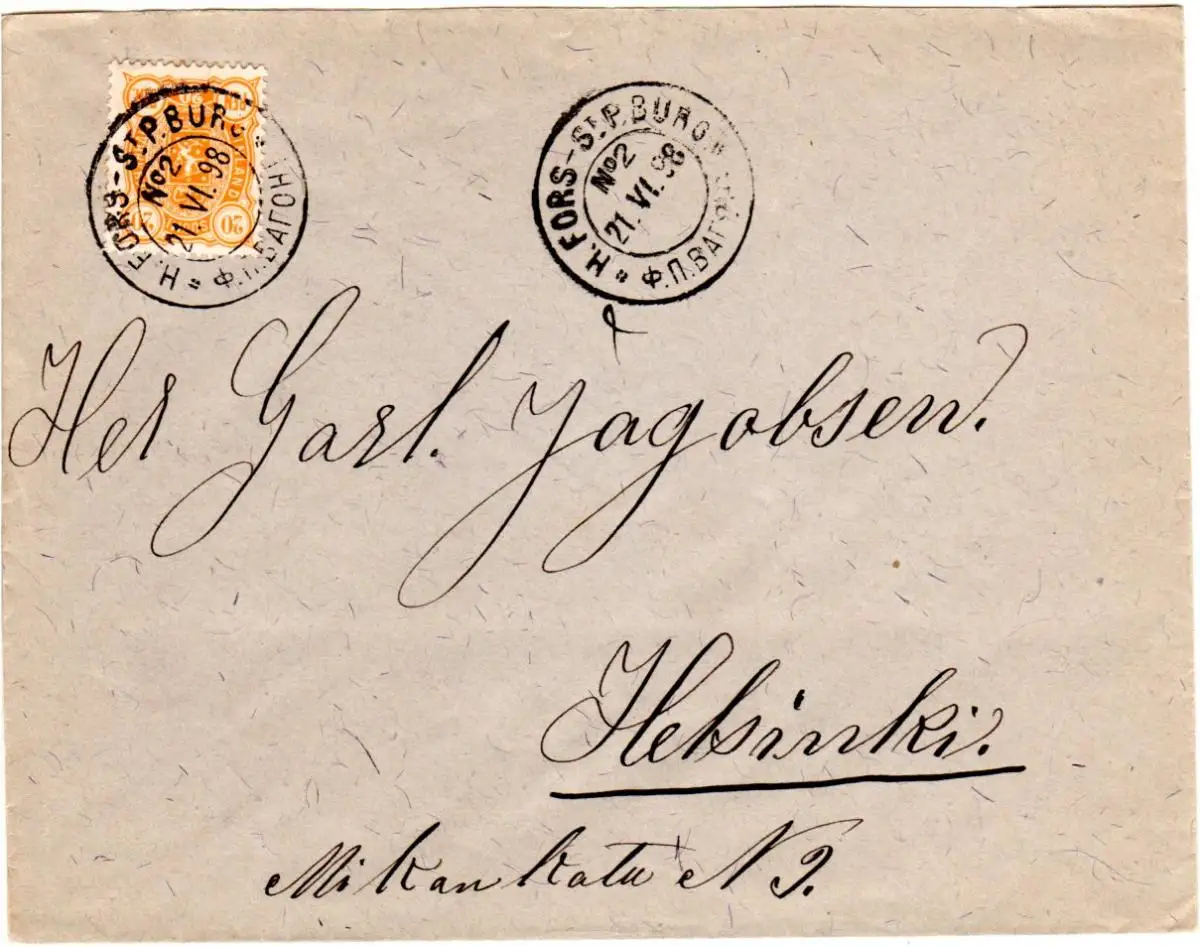 H.FORS-St.P.BURG " Ф.П.ВАГОНЪ "
No2
21. VI. 98
20 20
H.FORS-St.P.BURG " Ф.П.ВАГОНЪ "
No2
21. VI. 98
Her Carl. Jagobsen.
Helsinki.
Mikan katu N 9.